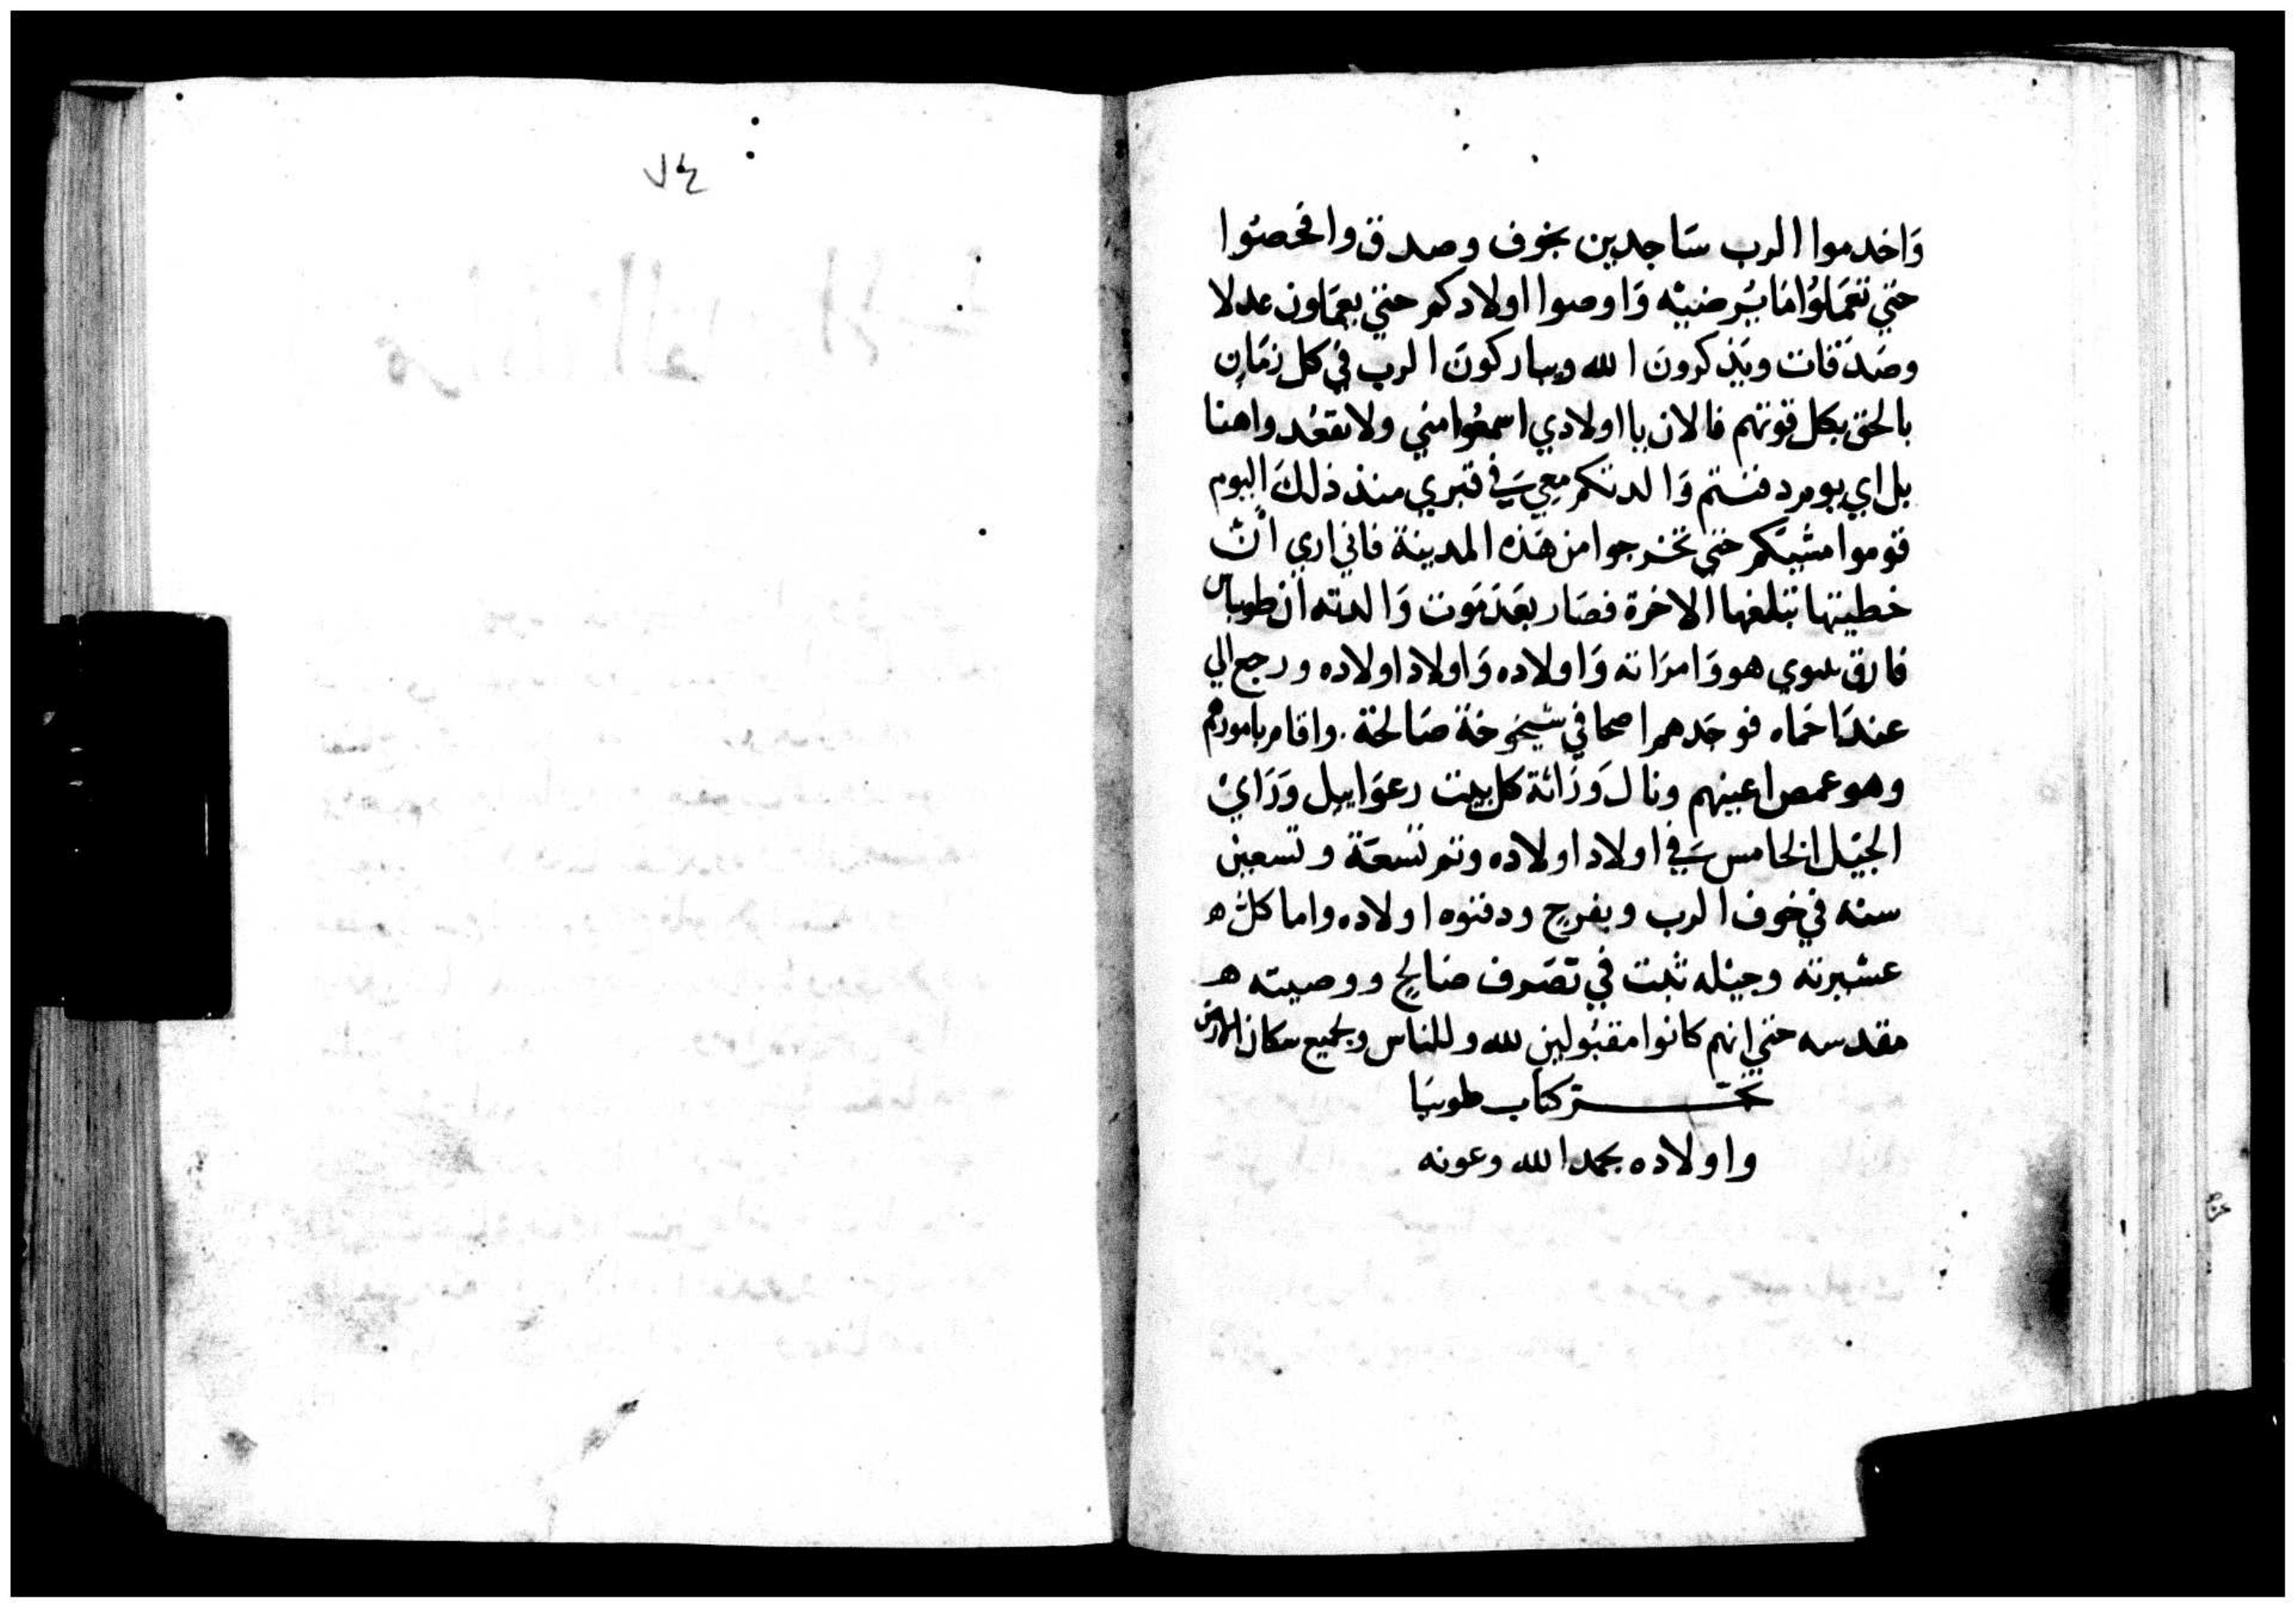 وَاخدموا الرب سَاجدين بخوف وصدق وافحصُوا
حتي تعمَلوُا مَا يُرضيْه وَاوصوا اولادكم حتي يعمَلون عدلا
وصَدَقات ويَذكرونَ الله ويباركونَ الرب في كل زمَان
بالحق بكل قوتهم فالان يا اولادي اسمعُوا مني ولا تقعُدوا هنا
بل اي يوم دفنتم وَالدتكم معي في قبري منذ ذلكَ اليوم
قوموا مشيكم حتي تخرجوا من هَذه المدينة فاني اري انّ
خطيتها تبلغها الاخرة فصَار بعَد مَوت وَالدته ان طوبياس
فارق نينوي هو وَامرَاته وَاولاده وَاولاد اولاده ورجع الي
عند احَماه فوجَدهم اصحا في شيخوخة صَالحة . واقام بامورهم
وهو غمص اعينهم ونال وَرَاثة كل بيت رعوَاييل وَرَايْ
الجيْل الخامس في اولاد اولاده وتم تسعَة وتسعين
سنه في خوف الرب وبفرح ودفنوه اولاده واما كلّ ه
عشيرته وجيْله ثبت في تصَرف صَالح ووصيته ه
مقدسه حتي انهم كانوا مقبُولين لله وللناس ولجميع سكان الارض
تمّ كتاب طوبيَا
واولاده بحمد الله وعونه
٧٤